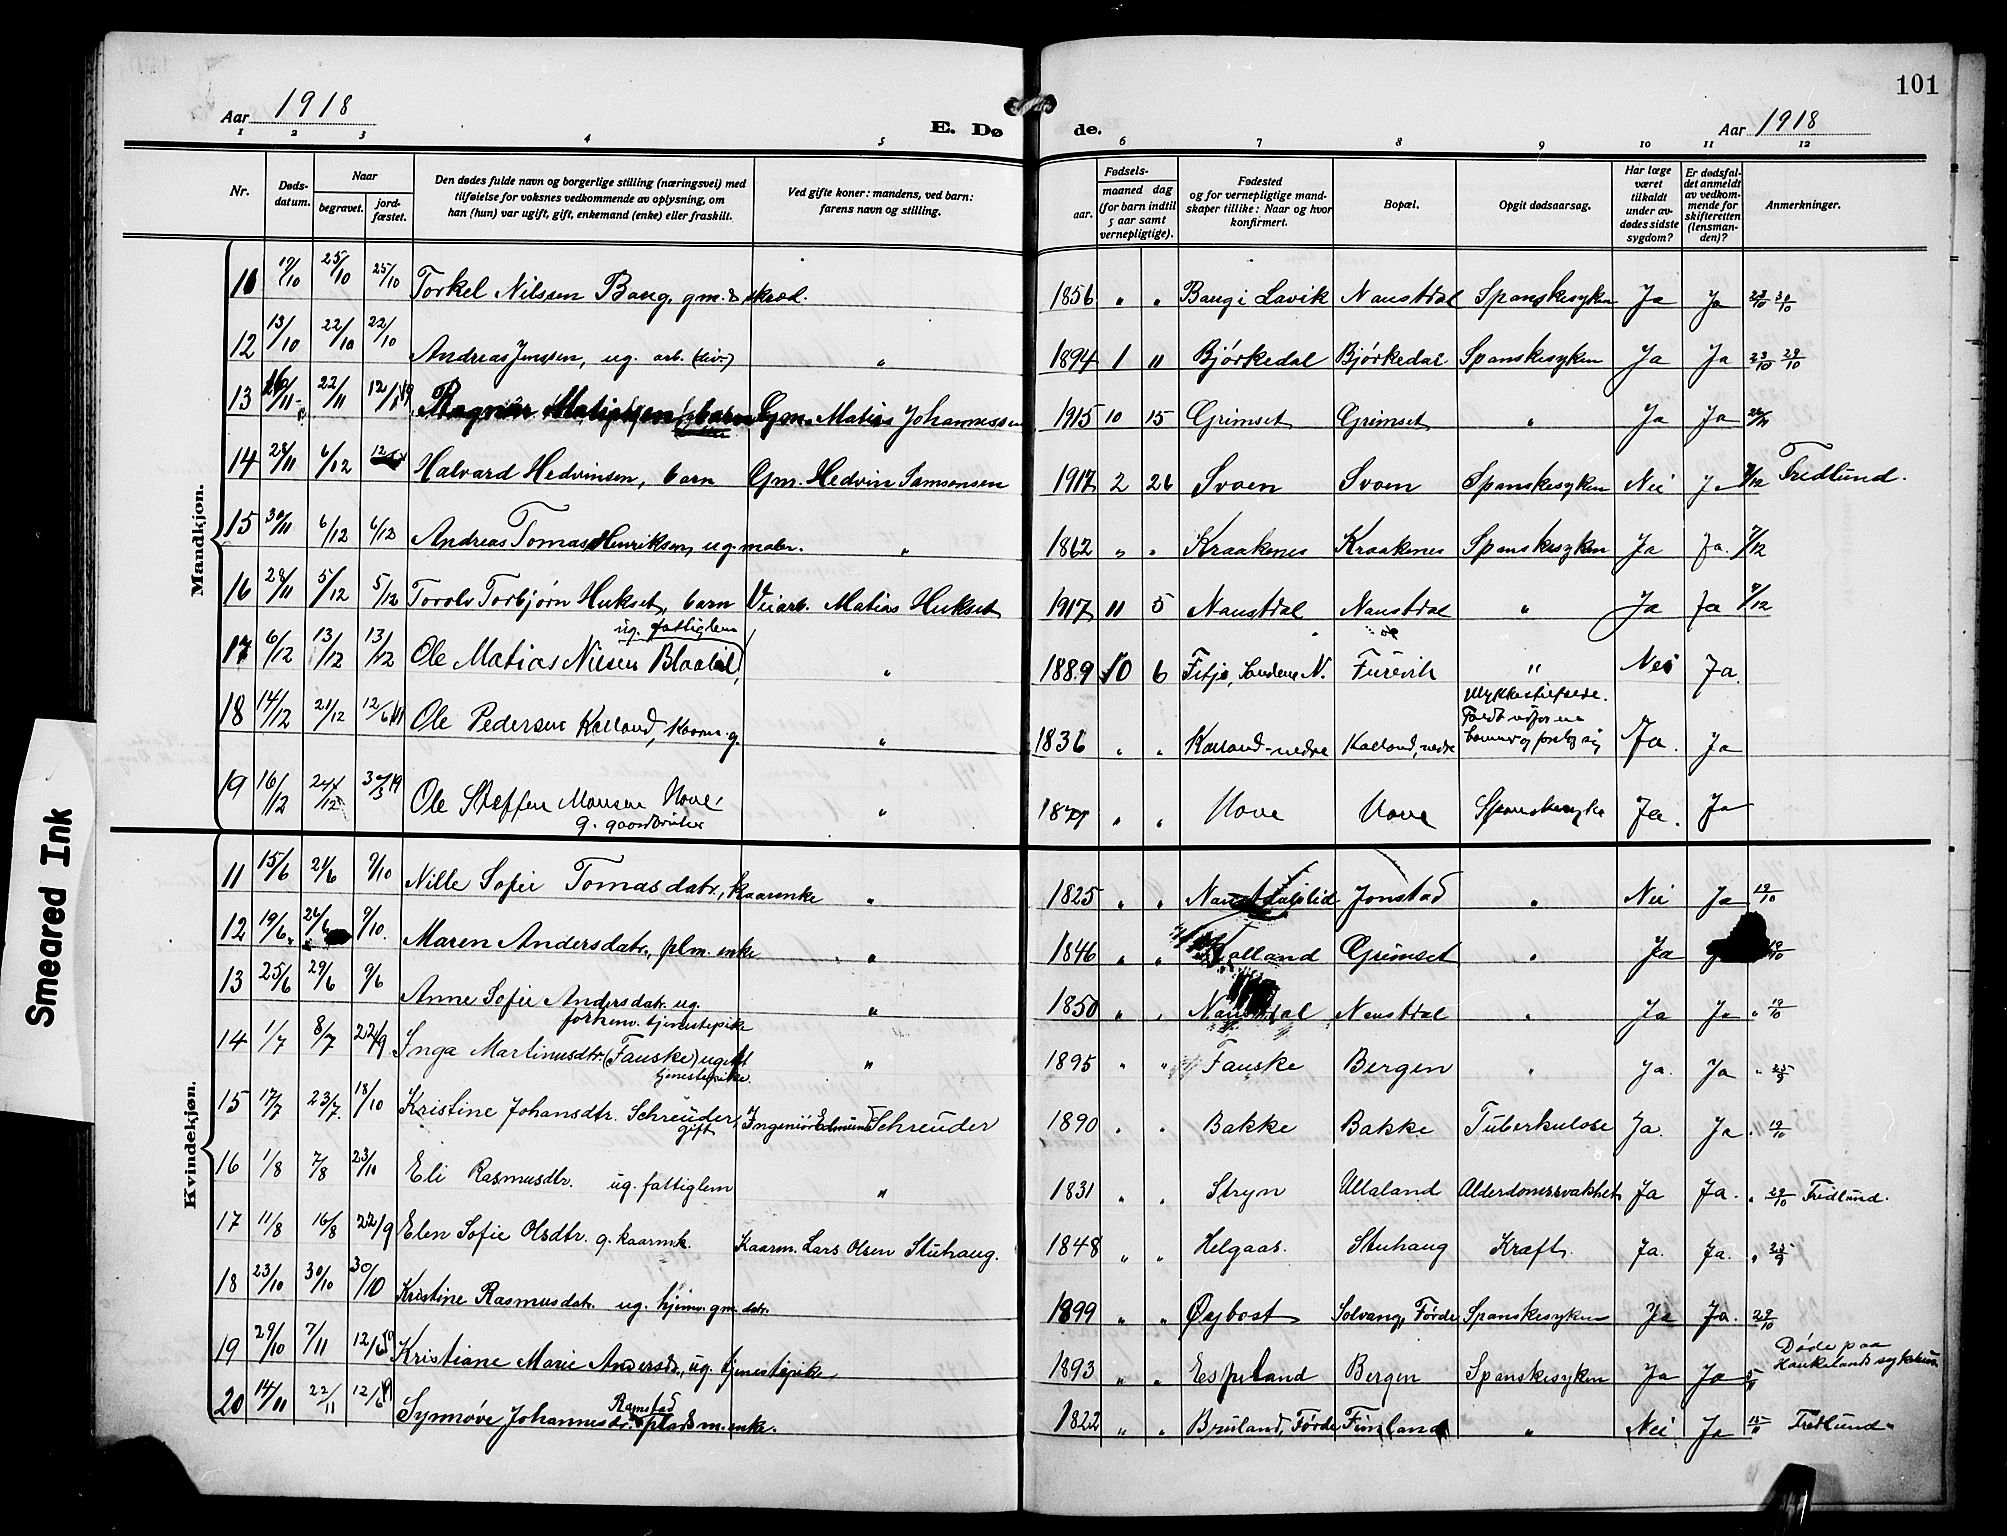 101
Aar 1918
E. Dø
de.
Aar 1918
1 2 3 4 5 6 7 8 9 10 11 12
Nr.
Døds-
datum.
Naar
begravet.
jord-
fæstet.
Den dødes fulde navn og borgerlige stilling (næringsvei) med
tilføielse for voksnes vedkommende av oplysning, om
han (hun) var ugift, gift, enkemand (enke) eller fraskilt.
Ved gifte koner: mandens, ved barn:
farens navn og stilling.
Fødsels-
aar.
maaned dag
(for barn indtil
5 aar samt
vernepligtige).
Fødested
og for vernepligtige mand-
skaper tillike: Naar og hvor
konfirmert.
Bopæl.
Opgit dødsaarsag.
Har læge
været
tilkaldt
under av-
dødes sidste
sygdom?
Er dødsfal-
det anmeldt
av vedkom-
mende for
skifteretten
(lensman-
den)?
Anmerkninger.
Mandkjøn.
11 19/10 25/10 25/10 Torkel Nilssen Baug, gm. & skræd. 1856 " " Baug i Lavik Naustdal Spanskesyken Ja Ja
12 13/10 22/10 22/10 Andreas Jenssen, ug. arb. (div.) " 1894 1 11 Bjørkedal Bjørkedal Spanskesyken Ja Ja 23/10 29/10
13 22/11 Ragnar Matiassen, barn Gm. Matias Johannessen 1915 10 15 Grimset Grimset " Ja Ja
14 28/11 6/12 Halvard Hedvinsen, barn Gm. Hedvin Samsonsen 1917 2 26 Svoen Svoen Spanskesyken Nei J 7/12 Fredlund.
15 30/11 6/12 6/12 Andreas Tomas Henriksen, ug. maler. " 1862 " " Kraakenes Kraakenes Spanskesyken Ja Ja. 7/12
16 28/11 5/12 5/12 Torolv Torbjørn Hukset, barn Veiarb. Matias Hukset 1917 11 5 Naustdal Naustdal " Ja Ja 7/12
ug. fattiglem
17 6/12 13/12 13/12 Ole Matias Nilsen Blaalid, " 1889 10 6 Fitje, Sandene N. Furevik " Nei Ja.
Ulykkestilfælde.
18 14/12 21/12 Ole Pedersen Kalland, kaarm. g. " 1836 " " Kalland-nedre Kalland, nedre Ja. Ja
19 16/12 Ole Steffen Monsen Hove,
g. gaardbruker " " " Hove Hove Spanskesyke Ja. Ja
Kvindekjøn.
11 15/6 21/6 9/10 Nille Sofie Tomasdatr., kaarenke " 1825 " " Naustdalslid Jonstad " Nei Ja 19/10
12 19/6 9/10. Maren Andersdatr., plm. enke " 1846 " " Kalland Grimset " Ja
13 25/6 29/6 9/6 Anne Sofie Andersdatr. ug.
forhenv. tjenestepike " 1850 " " Naustdal Naustdal " Ja Ja " 19/10
14 1/7 8/7 22/9 Inga Martinusdtr. (Fauske) ugift
tjenestepike. " 1895 " " Fauske Bergen " Ja. Ja
15 17/7 23/7. 18/10 Kristine Johansdtr. Schreuder,
gift Ingeniør Edmund Schreuder 1890 " " Bakke Bakke Tuberkulose Ja. Ja " 19/10
16 1/8 7/8 23/10 Eli Rasmusdtr. ug. fattiglem " 1831 " " Stryn Ullaland Alderdomssvakhet Ja Ja. " 29/10 Fredlund.
17 11/8 16/8 22/9 Elen Sofie Olsdtr. g. kaarmk. Kaarm. Lars Olsen Stuhaug. 1848 " " Helgaas. Stuhaug Kræft. Ja. Ja.
18 23/10 30/10 30/10 Kristine Rasmusdatr. ug. hjemv. gm. datr. 1899 " " Øyjbost Solvang, Førde Spanskesyken Ja Ja. 29/10
19 29/10 7/11 Kristiane Marie Andersdr., ug. tjenestepike 1893 " " Espeland Bergen Spanskesyken Ja Ja Døde paa
Haukelands sykehus.
20 14/11 22/11 Synnøve Johannesdr. Ramstad pladsm. enke. 1822 " " Bruland, Førde Fimland " Nei Ja Fredlund
Smeared Ink